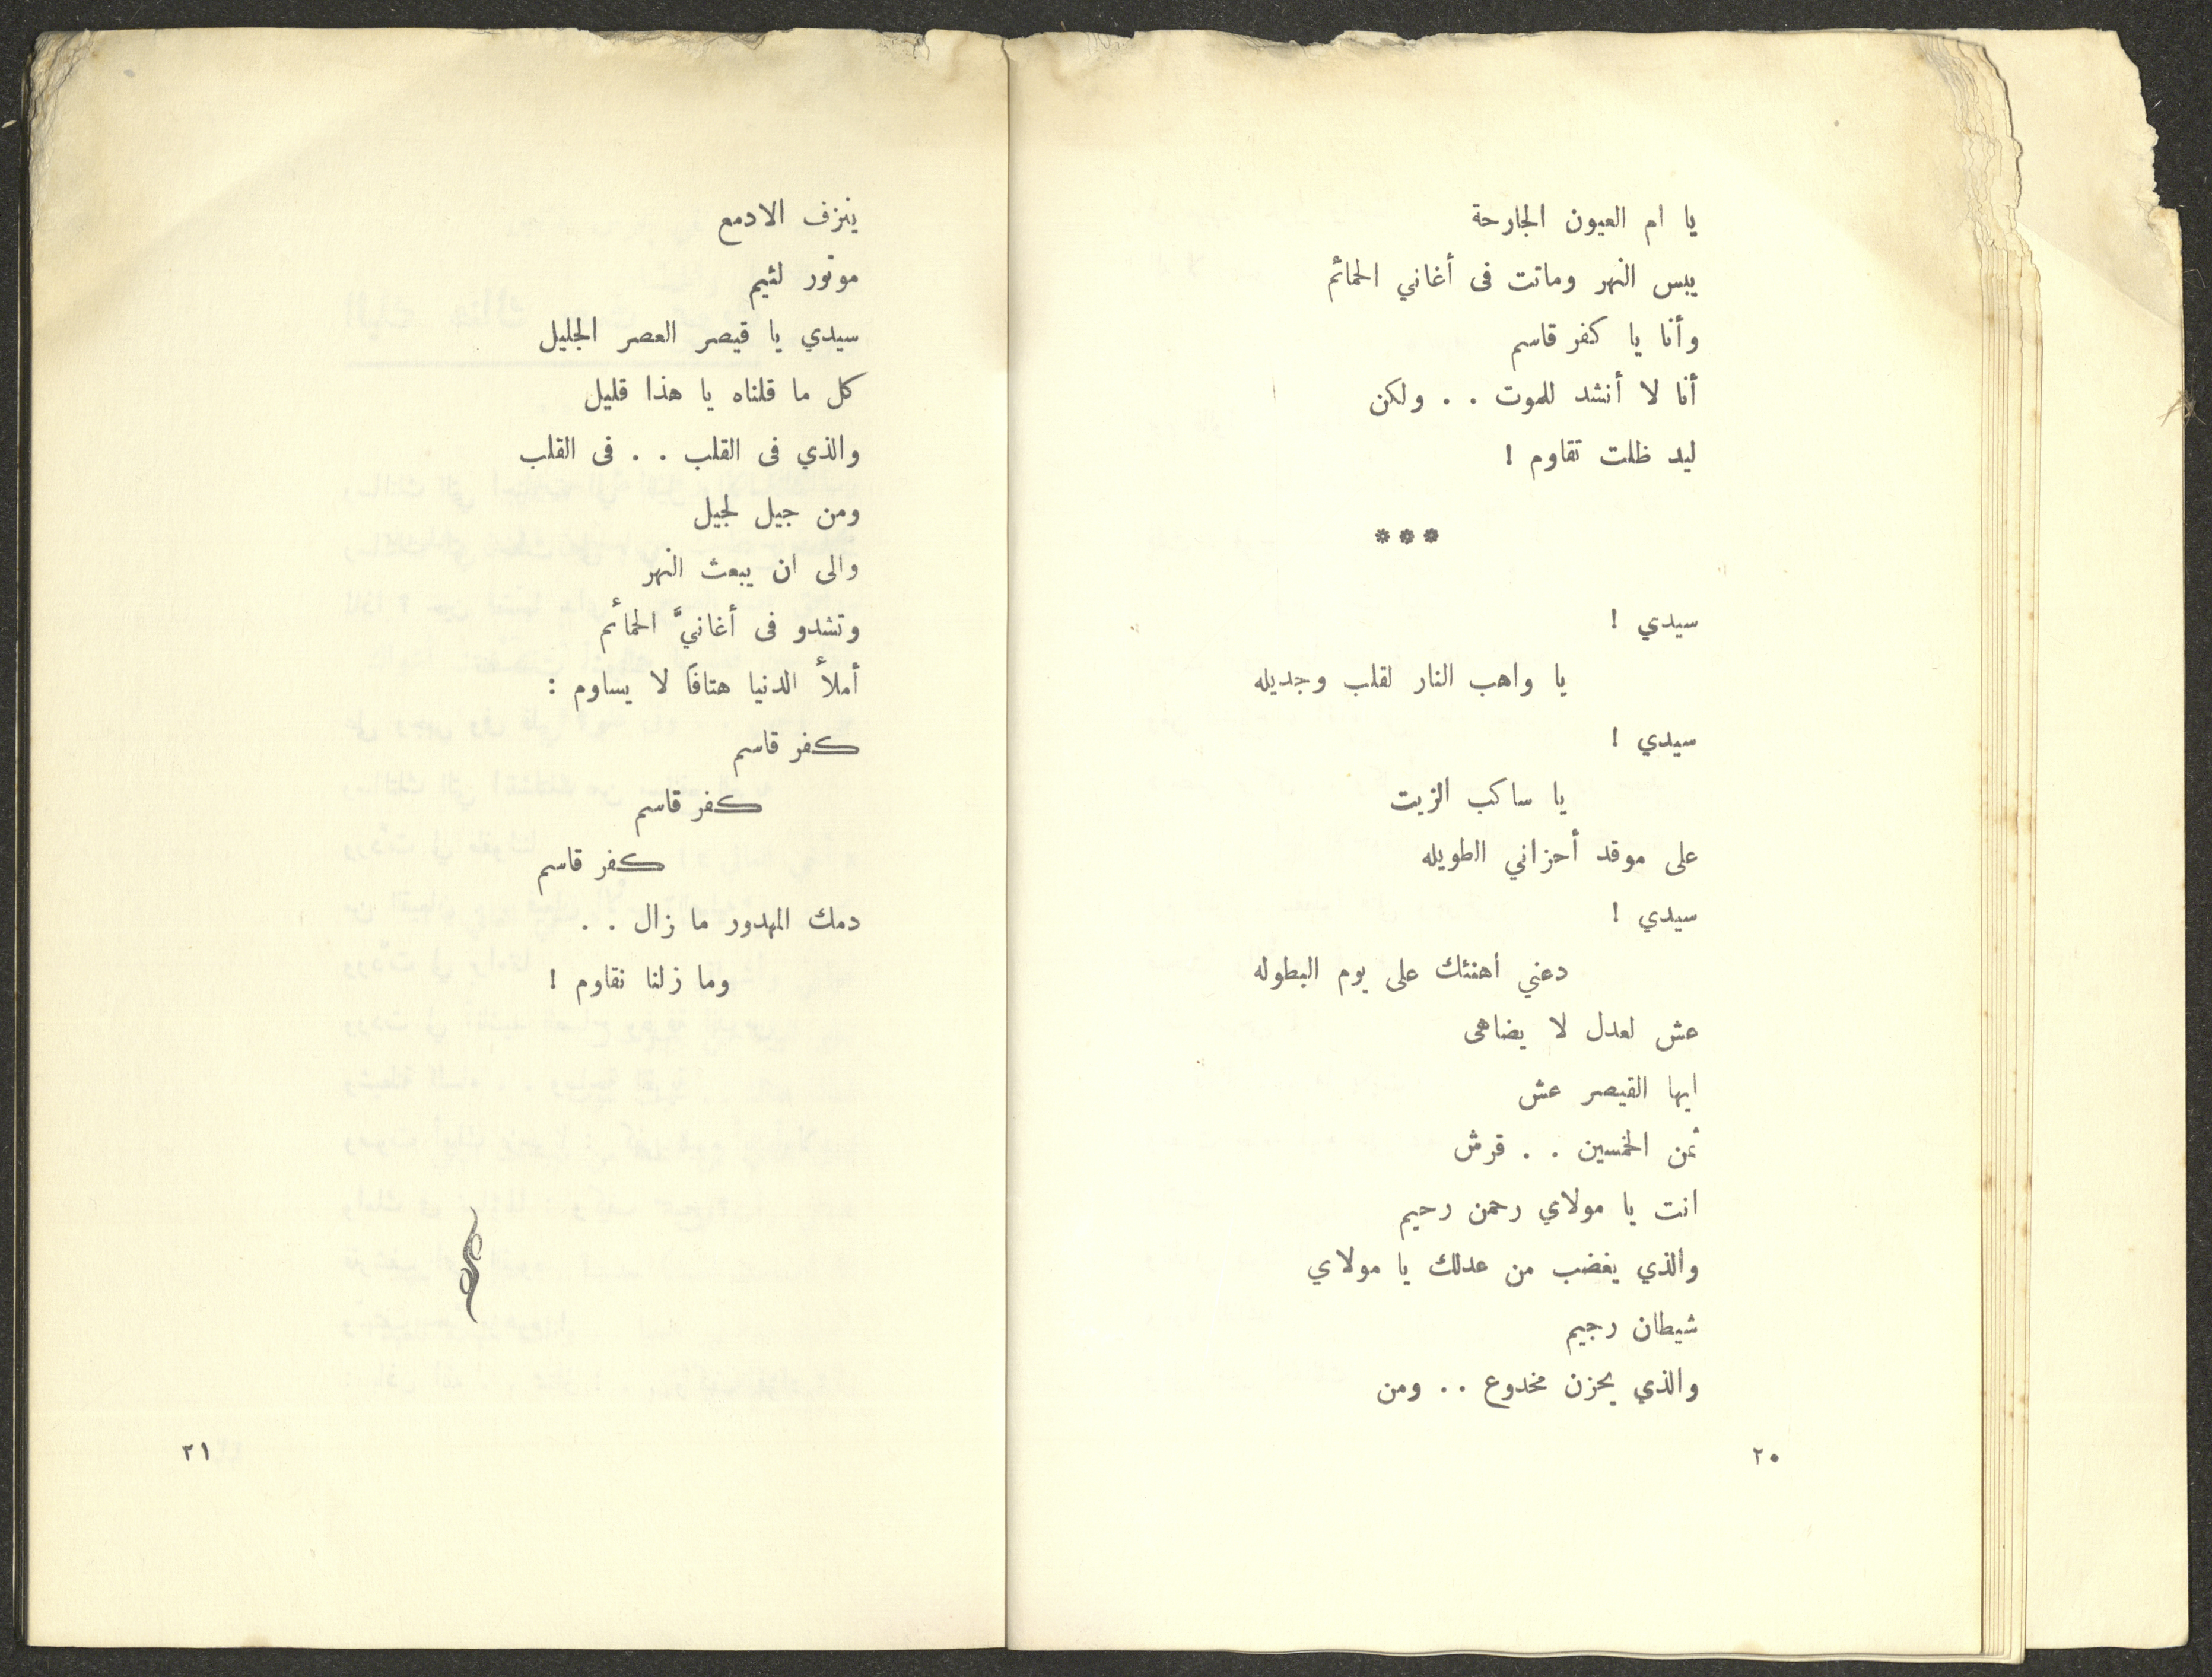 يا ام العيون الجارحة
يبس النهر وماتت فى أغاني الحمائم
وأنا يا كفر قاسم
أنا لا أنشد للموت . . ولكن
ليد ظلت تقاوم !
***
سيدي !
يا واهب النار لقلب وجديله
سيدي !
يا ساكب الزيت
على موقد أحزاني الطويله
سيدي !
دعني اهنئك على يوم البطوله
عش لعدل لا يضاهى
ايها القيصر عش
ثمن الخمسين . . قرش
انت يا مولاي رحمن رحيم
والذي يغضب من عدلك يا مولاي
شيطان رجيم
والذي يحزن مخدوع . . ومن
٢٠
ينزف الادمع
موتور لئيم
سيدي يا قيصر العصر الجليل
كل ما قلناه يا هذا قليل
والذي فى القلب . . فى القلب
ومن جيل لجيل
والى ان يبعث النهر
وتشدو فى أغانيَّ الحمائم
أملأ الدنيا هتافاً لا يساوم :
كفر قاسم
كفر قاسم
كفر قاسم
دمك المهدور ما زال . .
وما زلنا نقاوم !
٢١